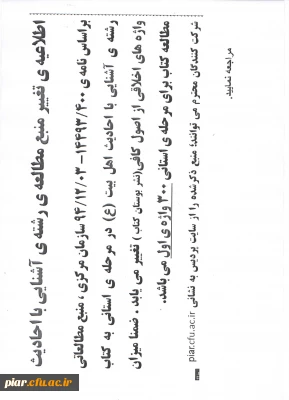 اطلاعیه ی تغییر منبع مطالعه ی رشته ی آشنایی با احادیث
براساس نامه ی ۱۴۴۹۳/۴۰۰ - ۹۴/۱۲/۰۳ سازمان مرکزی ، منبع مطالعاتی
رشته ی آشنایی با احادیث اهل بیت (ع) در مرحله ی استانی به کتاب
واژه های اخلاقی از اصول کافی(نشر بوستان کتاب ) تغییر می یابد . ضمنا میزان
مطالعه کتاب برای مرحله ی استانی ۳۰۰ واژه ی اول می باشد.
شرکت کنندگان محترم می توانند؛ منبع ذکرشده را از سایت پردیس به نشانی piar.cfu.ac.ir
مراجعه نمایید.
piar.cfu.ac.ir